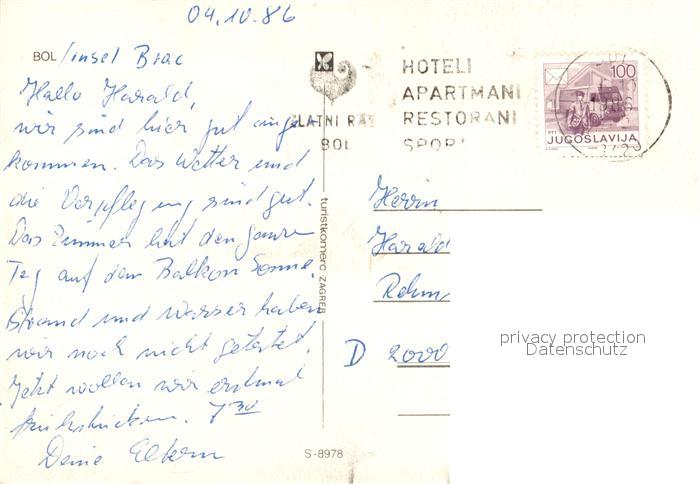 04.10.86
BOL /insel Brac
Hallo Harald,
wir sind hier gut ange
kommen. Das Wetter und
die Verpflegung sind gut.
Das Zimmer hat den ganzen
Tag auf dem Balkon Sonne.
Strand und Wasser haben
wir noch nicht getestet.
Jetzt wollen wir erstmal
frühstücken. 7 30
Deine Eltern
turistkomerc ZAGREB
S-8978
HOTELI
APARTMANI
RESTORANI
SPORT
ZLATNI RAT
BOL
100
PTT
JUGOSLAVIJA
Herrn
Harald
D 2000
privacy protection
Datenschutz